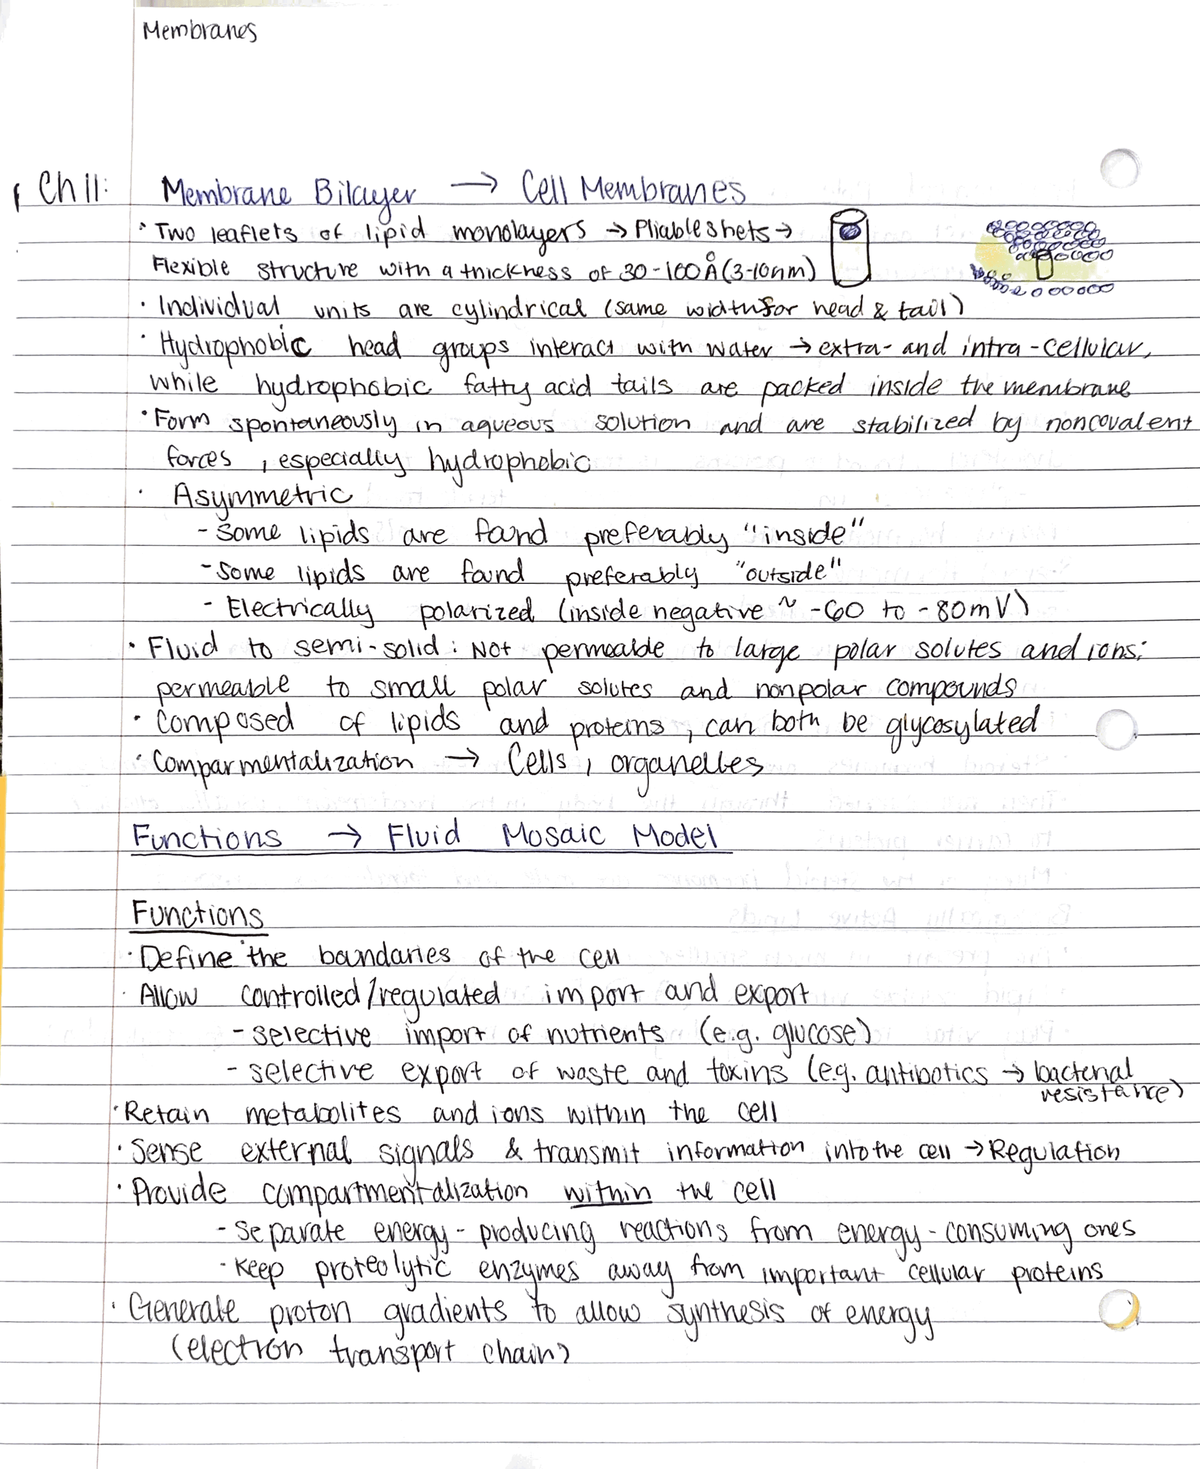 Membranes
Ch 11: Membrane Bilayer → Cell Membranes
• Two leaflets of lipid monolayers → Pliable shets →
Flexible structure with a thickness of 30-100Å (3-10nm)
• Individual units are cylindrical (same width for head & tail)
• Hydrophobic head groups interact with water → extra- and intra-cellular,
while hydrophobic fatty acid tails are packed inside the membrane
• Form spontaneously in aqueous solution and are stabilized by noncovalent
forces, especially hydrophobic
• Asymmetric
- Some lipids are found preferably "inside"
- Some lipids are found preferably "outside"
- Electrically polarized (inside negative ~ -60 to -80mV)
• Fluid to semi-solid: Not permeable to large polar solutes and ions;
permeable to small polar solutes and nonpolar compounds
• Composed of lipids and proteins, can both be glycosylated
• Comparmentalization → Cells, organelles
Functions → Fluid Mosaic Model
Functions
• Define the bandaries of the cell
• Allow controlled/regulated import and export
- selective import of nutrients (e.g. glucose)
- selective export of waste and toxins (e.g. antibotics → bacterial
resistance)
• Retain metabolites and ions within the cell
• Sense external signals & transmit information into the cell → Regulation
• Provide compartmentalization within the cell
- Separate energy-producing reactions from energy-consuming ones
- Keep proteolytic enzymes away from important cellular proteins
• Generate proton gradients to allow synthesis of energy
(electron transport chain)